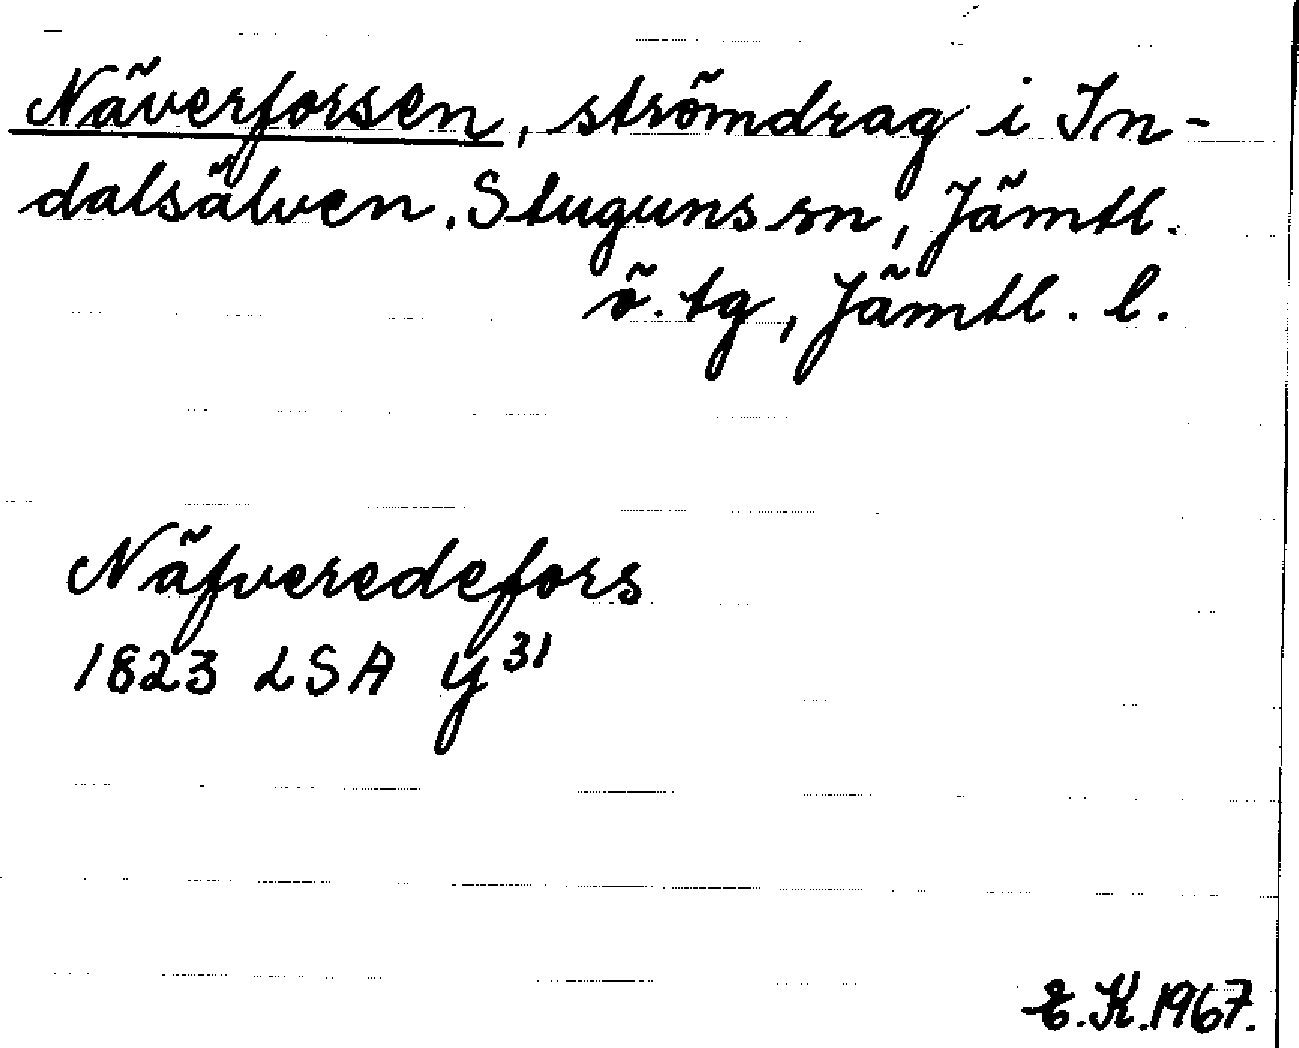 Näverforsen, strömdrag i In-
dalsälven. Stuguns sn, Jämtl.
ö. tg, Jämtl. l.
Näfveredefors
1823 LSA Y31
E.K.1967.